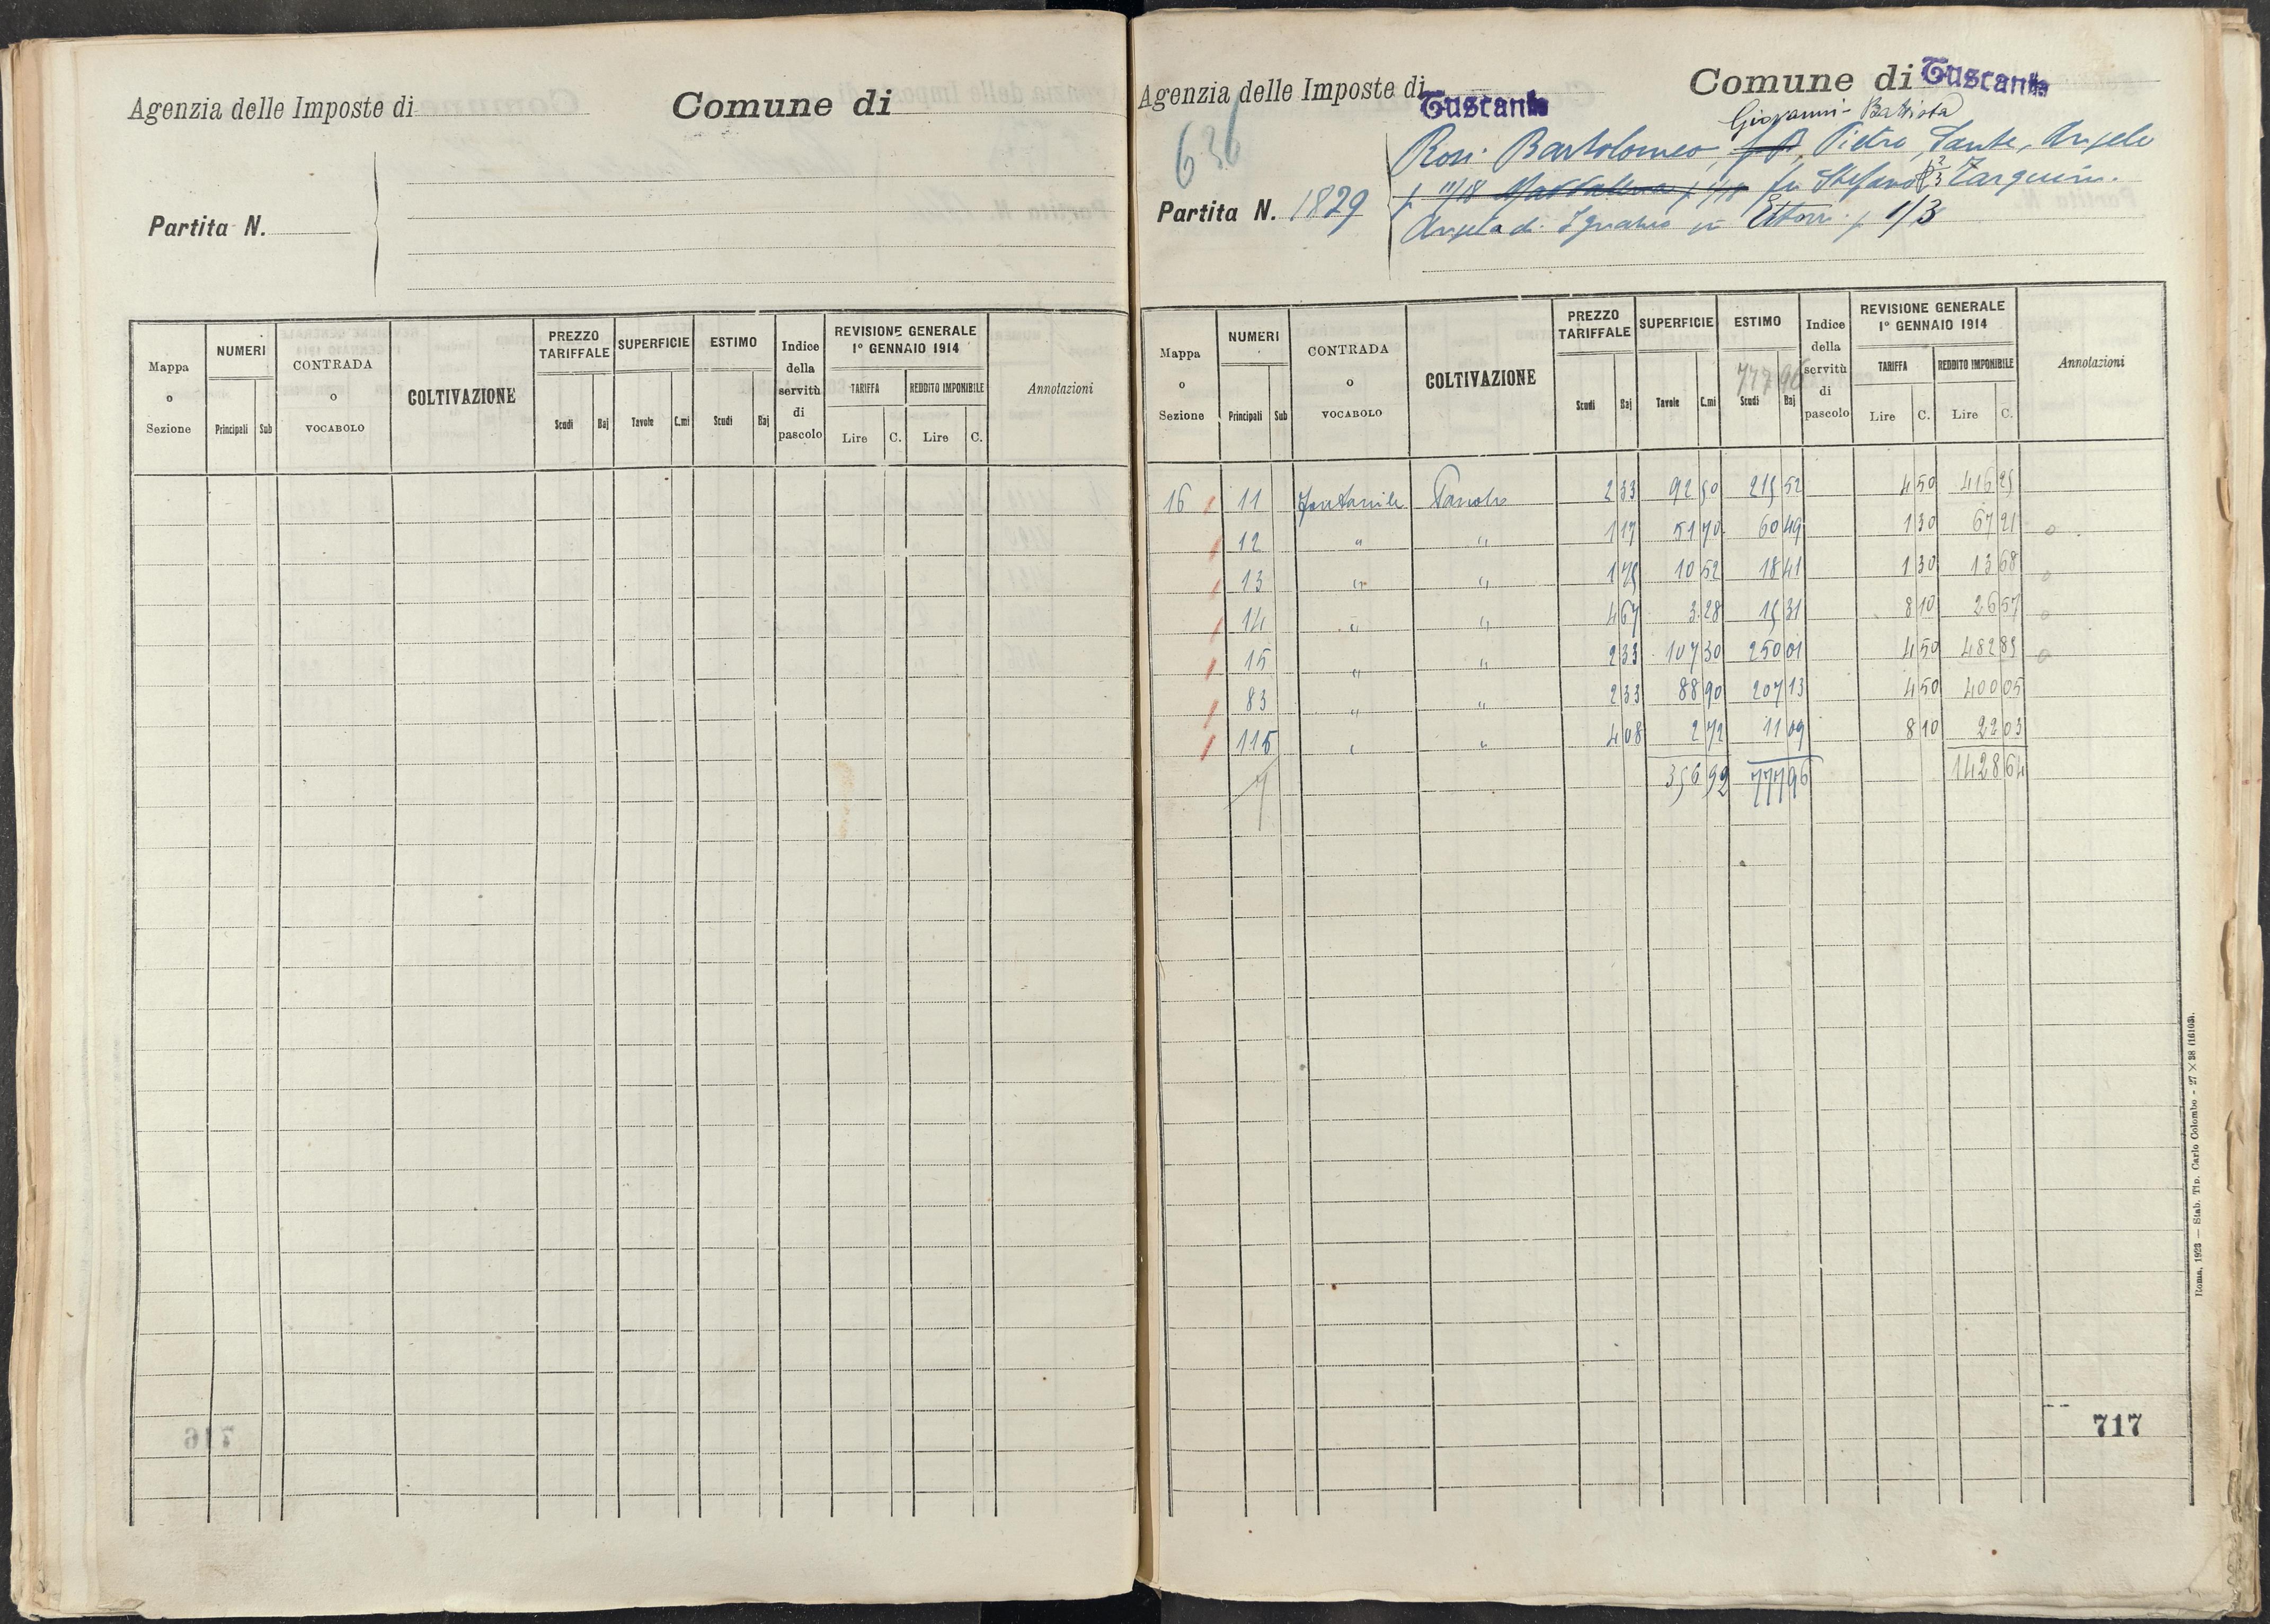 Agenzia delle Imposte di Comune di
Partita N.
Mappa o Sezione NUMERI Principali Sub CONTRADA o VOCABOLO COLTIVAZIONE PREZZO TARIFFALE Scudi Baj SUPERFICIE Tavole C.mi ESTIMO Scudi Baj Indice della servitù di pascolo REVISIONE GENERALE 1° GENNAIO 1914 TARIFFA Lire C. REDDITO IMPONIBILE Lire C. Annotazioni
Agenzia delle Imposte di Tuscania Comune di Tuscania
636
Giovanni-Battista
Rosi Bartolomeo, Pietro, Sante, Angelo
11/18 Maddalena 1/18 fu Stefano p 2/3 Tarquini
Partita N. 1829
Angela di Ignazio in Ettorri p 1/3
Mappa o Sezione NUMERI Principali Sub CONTRADA o VOCABOLO COLTIVAZIONE PREZZO TARIFFALE Scudi Baj SUPERFICIE Tavole C.mi ESTIMO 777 96 Scudi Baj Indice della servitù di pascolo REVISIONE GENERALE 1° GENNAIO 1914 TARIFFA Lire C. REDDITO IMPONIBILE Lire C. Annotazioni
16 11 Fontanile Pascolo 2 33 92 50 215 52 4 50 416 25
12 " " 1 17 51 70 60 49 1 30 67 21
13 " " 1 75 10 52 18 41 1 30 13 68
14 " " 4 67 3 28 15 31 8 10 26 57
15 " " 2 33 107 30 250 01 4 50 482 85
83 " " 2 33 88 90 207 13 4 50 400 05
115 " " 4 08 2 72 11 09 8 10 22 03
7 356 92 777 96 1428 64
717
Roma, 1923 — Stab. Tip. Carlo Colombo - 27 × 38 (16103).